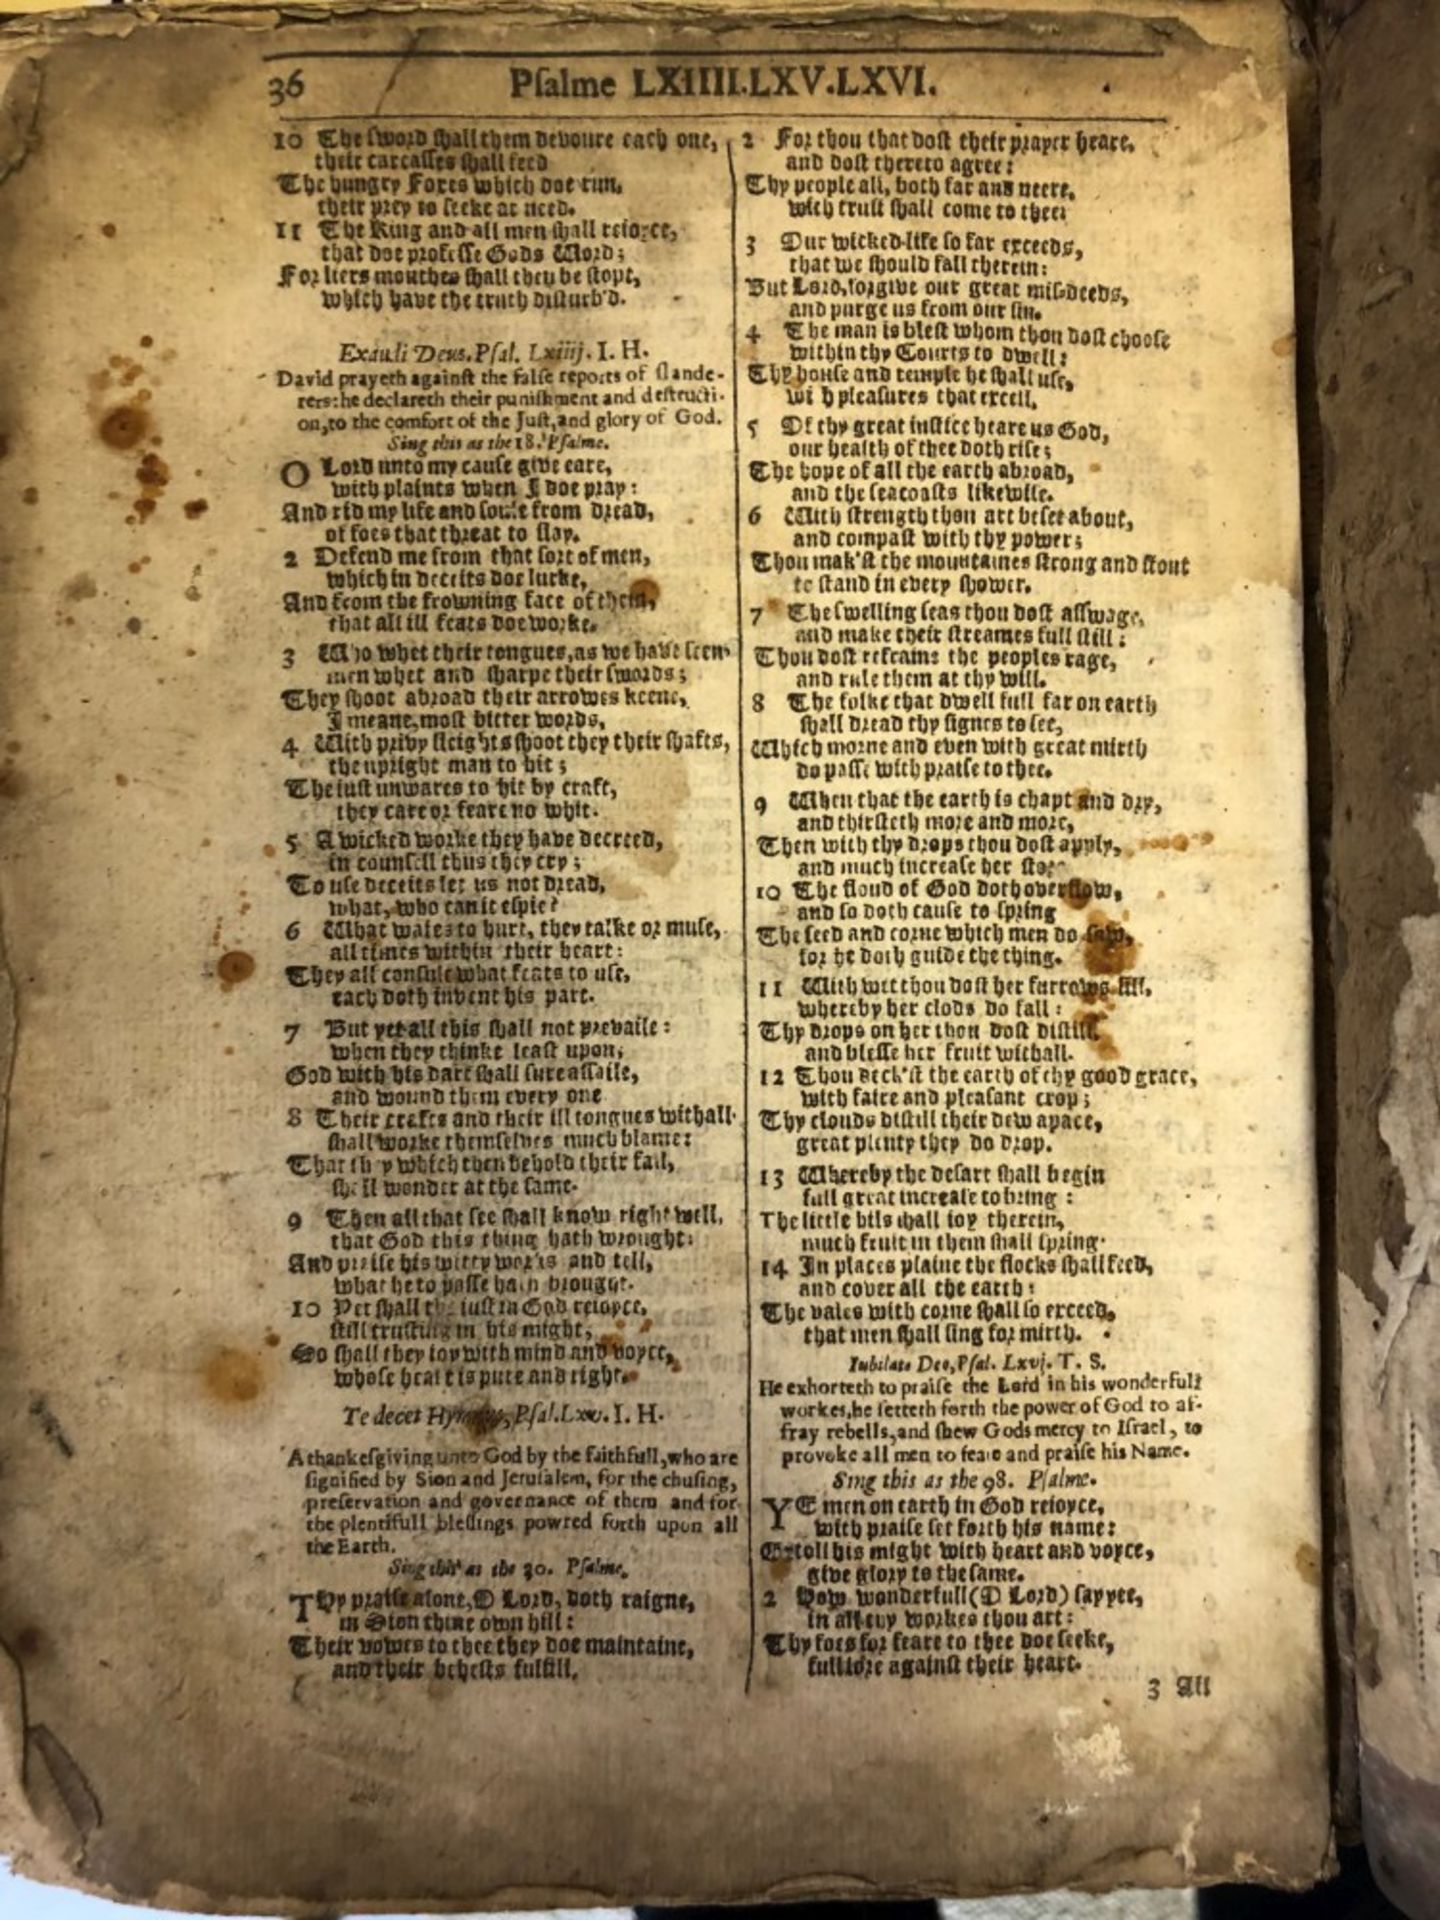 36 Pſalme LXIIII.LXV.LXVI.
10 The ſword ſhall them devoure each one,
their carcaſſes ſhall feed
The hungry Foxes which doe run,
their prey to ſeeke at need.
11 The King and all men ſhall reioyce,
that doe profeſſe Gods Word;
For liers mouthes ſhall then be ſtopt,
which have the truth diſturb'd.
Exaudi Deus. Pſal. Lxiiij. I. H.
David prayeth againſt the falſe reports of ſlande-
rers: he declareth their puniſhment and deſtructi-
on, to the comfort of the Juſt, and glory of God.
Sing this as the 18. Pſalme.
O Lord unto my cauſe give eare,
with plaints when I doe pray:
And rid my life and ſoule from dread,
of foes that threat to ſlay.
2 Defend me from that ſort of men,
which in deceits doe lurke,
And from the frowning face of them,
that all ill feats doe worke.
3 Who whet their tongues, as we have ſeen
men whet and ſharpe their ſwords;
They ſhoot abroad their arrowes keene,
I meane, moſt bitter words,
4 With privy ſleights ſhoot they their ſhafts,
the upright man to hit;
The iuſt unwares to hit by craft,
they care or feare no whit.
5 A wicked worke they have decreed,
in counſell thus they cry;
To uſe deceits let us not dread,
what, who can it eſpie?
6 What waies to hurt, they talke or muſe,
all times within their heart:
They all conſult what feats to uſe,
each doth invent his part.
7 But yet all this ſhall not prevaile:
when they thinke leaſt upon,
God with his dart ſhall ſure aſſaile,
and wound them every one
8 Their crafts and their ill tongues withall
ſhall worke themſelves much blame:
That they which then behold their fall,
ſhall wonder at the ſame.
9 Then all that ſee ſhall know right well,
that God this thing hath wrought:
And praiſe his witty works and tell,
what he to paſſe hath brought.
10 Yet ſhall the iuſt in God reioyce,
ſtill truſting in his might,
So ſhall they ioy with mind and voyce,
whoſe heart is pure and right.
Te decet Hymnus, Pſal. Lxv. I. H.
A thankeſgiving unto God by the faithfull, who are
ſignified by Sion and Jeruſalem, for the chuſing,
preſervation and governance of them and for
the plentifull bleſſings powred forth upon all
the Earth.
Sing this as the 30. Pſalme.
Thy praiſe alone, O Lord, doth raigne,
in Sion thine own hill:
Their vowes to thee they doe maintaine,
and their beheſts fulfill.
2 For thou that doſt their prayer heare,
and doſt thereto agree:
Thy people all, both far and neere,
with truſt ſhall come to thee:
3 Our wicked life ſo far exceeds,
that we ſhould fall therein:
But Lord, forgive our great miſ-deeds,
and purge us from our ſin.
4 The man is bleſt whom thou doſt chooſe
within thy Courts to dwell:
Thy houſe and temple he ſhall uſe,
wi h pleaſures that excell.
5 Of thy great iuſtice heare us God,
our health of thee doth riſe;
The hope of all the earth abroad,
and the ſeacoaſts likewiſe.
6 With ſtrength thou art beſet about,
and compaſt with thy power;
Thou mak'ſt the mountaines ſtrong and ſtout
to ſtand in every ſhower.
7 The ſwelling ſeas thou doſt aſſwage,
and make their ſtreames full ſtill:
Thou doſt refraine the peoples rage,
and rule them at thy will.
8 The folke that dwell full far on earth
ſhall dread thy ſignes to ſee,
Which morne and even with great mirth
do paſſe with praiſe to thee.
9 When that the earth is chapt and dry,
and thirſteth more and more,
Then with thy drops thou doſt apply,
and much increaſe her ſtore
10 The floud of God doth overflow,
and ſo doth cauſe to ſpring
The ſeed and corne which men do ſow,
for he doth guide the thing.
11 With wet thou doſt her furrows fill,
whereby her clods do fall:
Thy drops on her thou doſt diſtill,
and bleſſe her fruit withall.
12 Thou deck'ſt the earth of thy good grace,
with faire and pleaſant crop;
Thy clouds diſtill their dew apace,
great plenty they do drop.
13 Whereby the deſart ſhall begin
full great increaſe to bring:
The little hils ſhall ioy therein,
much fruit in them ſhall ſpring.
14 In places plaine the flocks ſhall feed,
and cover all the earth:
The vales with corne ſhall ſo exceed,
that men ſhall ſing for mirth.
Iubilate Deo, Pſal. Lxvj. T. S.
He exhorteth to praiſe the Lord in his wonderfull
workes, he ſetteth forth the power of God to af-
fray rebells, and ſhew Gods mercy to Iſrael, to
provoke all men to feare and praiſe his Name.
Sing this as the 98. Pſalme.
YE men on earth in God reioyce,
with praiſe ſet forth his name:
Extoll his might with heart and voyce,
give glory to the ſame.
2 How wonderfull (O Lord) ſay yee,
in all thy workes thou art:
Thy foes for feare to thee doe ſeeke,
full ſore againſt their heart.
3 All